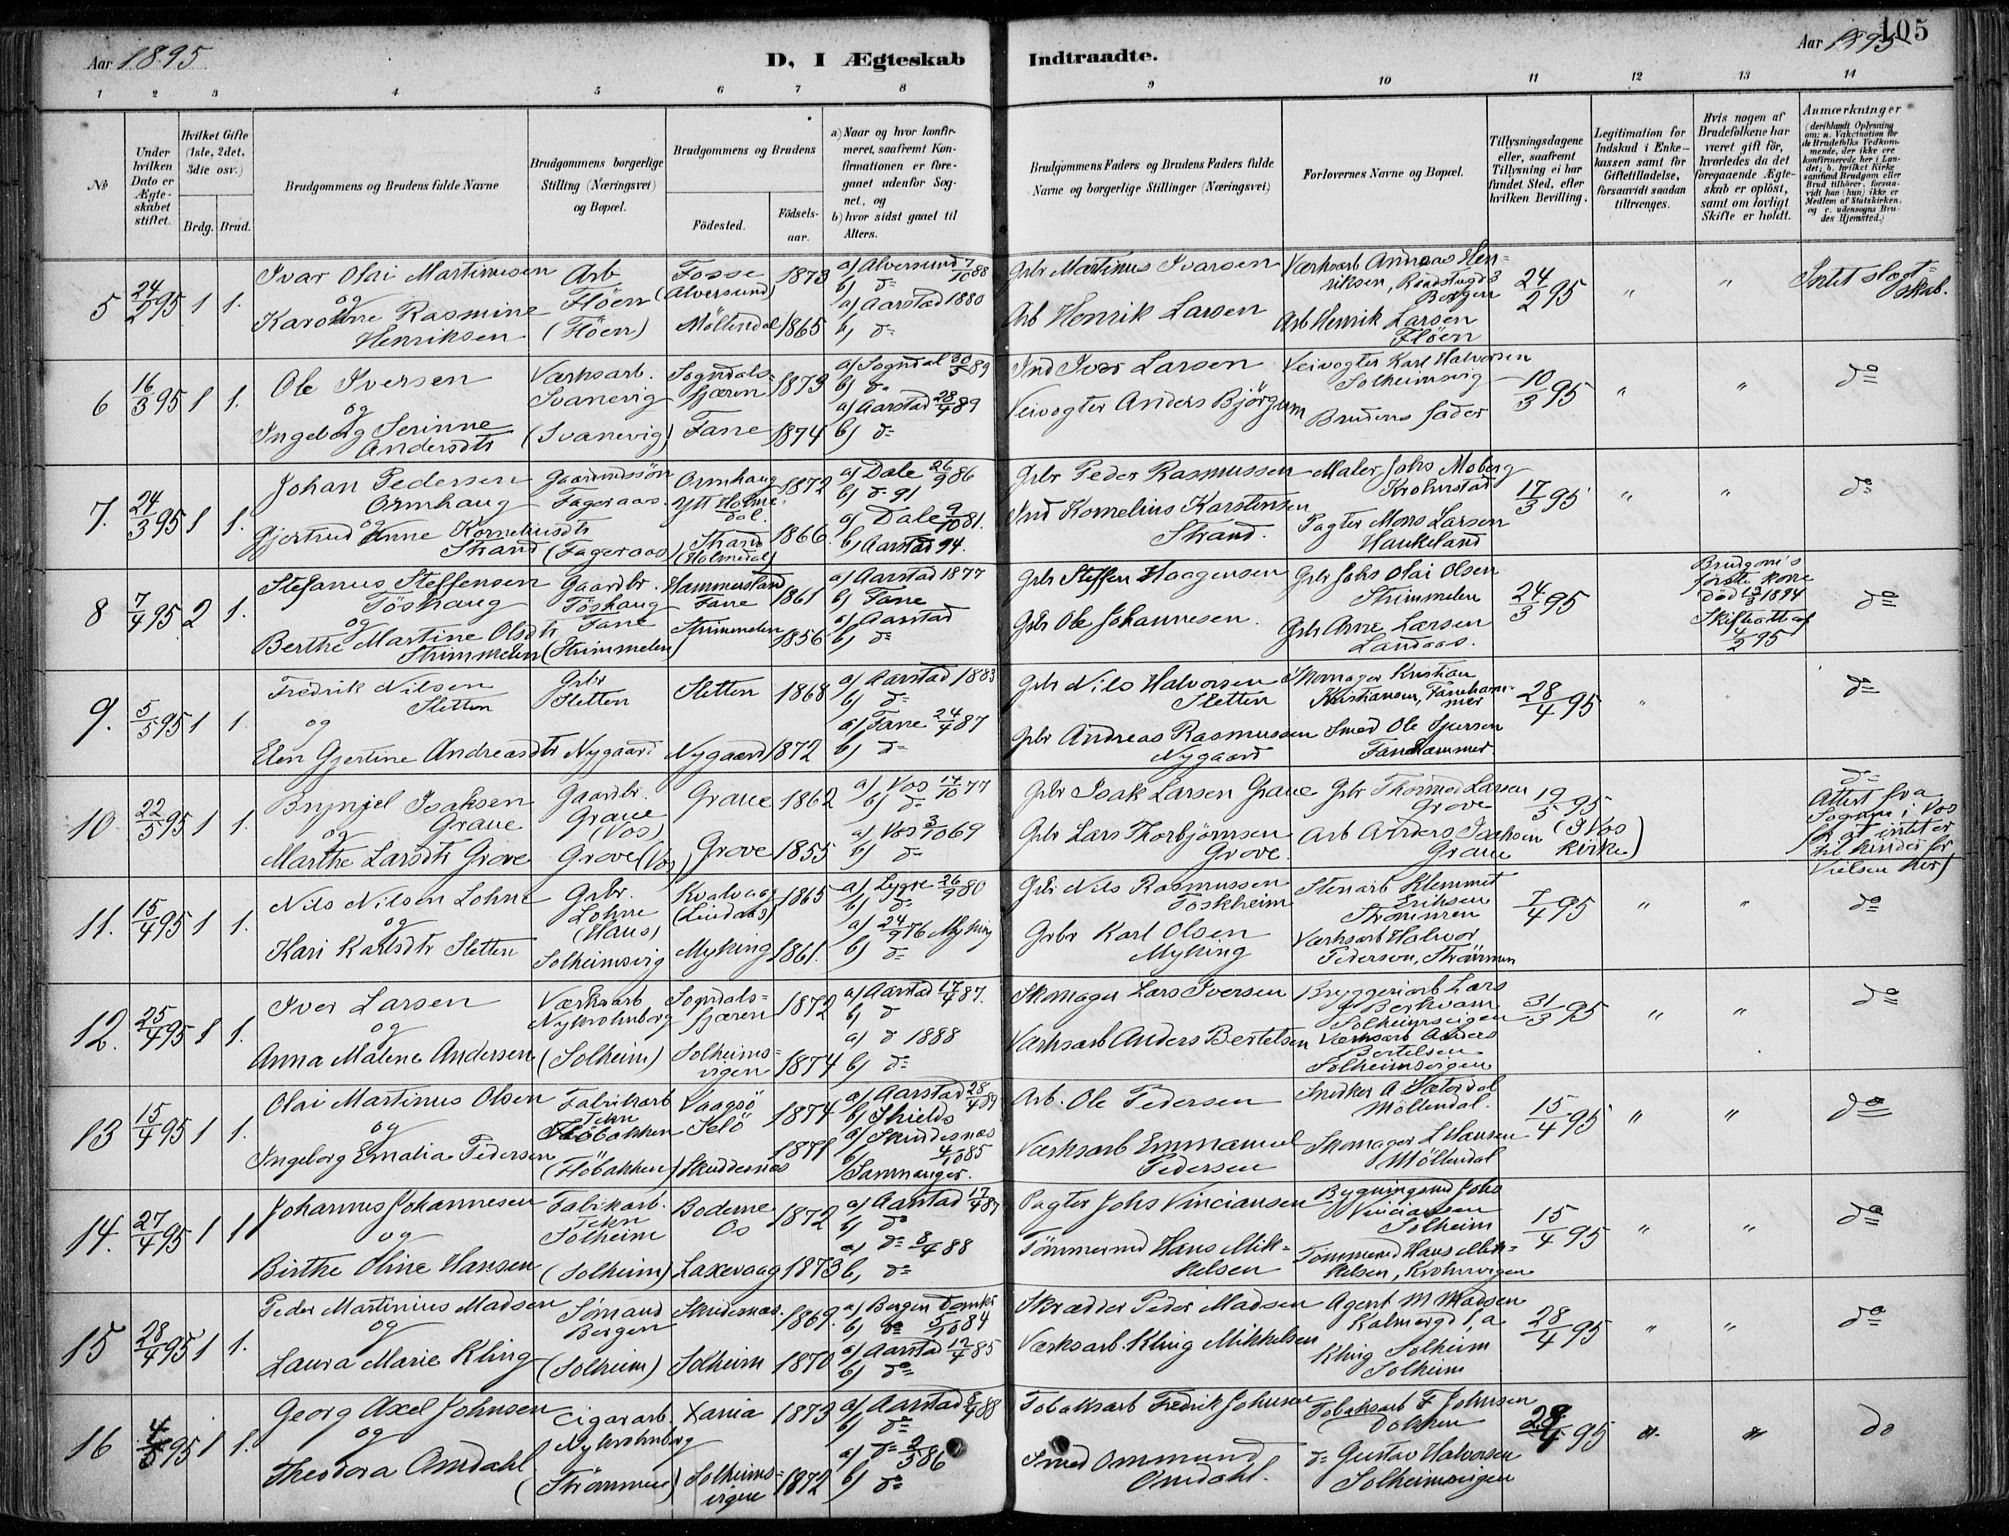 Aar 1895
D, I Ægteskab Indtraadte.
Aar 1895
105
1 2 3 4 5 6 7 8 9 10 11 12 13 14
№
Under hvilken Dato er Ægteskabet stiftet.
Hvilket Gifte (1ste, 2det, 3die osv.)
Brdg. Brud.
Brudgommens og Brudens fulde Navne
Brudgommens borgerlige Stilling (Næringsvei) og Bopæl.
Brudgommens og Brudens
Födested.
Födsels-aar.
a) Naar og hvor konfirmeret, saafremt Konfirmationen er foregaaet udenfor Sognet, og
b) hvor sidst gaaet til Alters.
Brudgommens Faders og Brudens Faders fulde Navne og borgerlige Stillinger (Næringsvei)
Forlovernes Navne og Bopæl.
Tillysningsdagene eller, saafremt Tillysning ei har fundet Sted, efter hvilken Bevilling.
Legitimation for Indskud i Enkekassen samt for Giftetilladelse, forsaavidt saadan tiltrænges.
Hvis nogen af Brudefolkene har været gift för, hvorledes da det foregaaende Ægteskab er oplöst, samt om lovligt Skifte er holdt.
Anmærkninger
5 24/2 95 1 1.
Ivar Olai Martinusen
og
Karoline Rasmine
Henriksen
Arb
Flöen
(Flöen)
Fosse
(Alversund)
Möllendal
1873
1865
a) Alversund 7/10 88
b) do
a) Aarstad 1880
b) do
Grbr Martinus Ivarsen
Arb Henrik Larsen
Værksarb Andreas Henriksen,
Bergen
Arb Henrik Larsen
Flöen
24/2 95 " "
Intet slægtskab.
6 16/3 95 1 1.
Ole Iversen
og
Ingeborg Serinne
Andersdtr
Værksarb.
Svanevig
(Svanevig)
Sogndals-
fjæren
Fane
1873
1874
a) Sogndal 30/5 89
b) do
a) Aarstad 28/4 89
b) do
Ind Iver Larsen
Veivogter Anders Björgum
Veivogter Karl Halvorsen
Solheimsvig
Brudens fader
10/3 95 " " do
7. 24/3 95 1 1.
Johan Pedersen
Ormhaug
og
Gjertrud Anne Korneliusdtr
Strand
Gaardmdssön
Fageraas
(Fageraas)
Ormhaug
Ytt Holmedal.
Strand
(Holmedal)
1872
1866
a) Dale 26/9 86
b) do 91
a) Dale 9/10 81.
b) Aarstad 94.
Grbr Peder Rasmussen
Ind Kornelius Karstensen
Strand.
Maler Johs Moberg
Krohnstad
Pagter Mons Larsen
Haukeland
17/3 95 " " do
8 7/4 95 2 1.
Stefanus Steffensen
Töshaug
og
Berthe Martine Olsdtr
Strimmelen
Gaardbr.
Töshaug
Fane
(Strimmelen)
Hammersland
Fane
Strimmelen
1861
1856
a) Aarstad 1877
b) Fane
a) Aarstad
b) do
Grbr Steffen Haagensen
Grbr Ole Johannesen.
Grbr Johs Olai Olsen
Strimmelen
Grbr Arne Larsen
Landaas.
24/3 95
Brudgom's
første kone
död 13/3 1894
Skifteatt af
4/2 95
do
9. 5/5 95 1 1.
Fredrik Nilsen
Sletten
og
Elen Gjertine Andreasdtr
Grbr
Sletten
Nygaard
Sletten
Nygaard
1868
1872
a) Aarstad 1883
b) do
a) Fane 24/4 87
b) do
Grbr Nils Halvorsen
Sletten
Grbr Andreas Rasmussen
Nygaard
Skomager Kristian
Kristiansen, Fanehammer
Smed Ole Sjursen
Fanehammer
28/4 95 " do
10 22/5 95 1 1.
Brynjel Isaksen
Graue
og
Marthe Larsdtr Grove
Gaardbr.
Graue
(Vos)
Grove (Vos)
Graue
Grove
1862
1855
a) Vos 14/10 77
b) do
a) Vos 3/10 69
b) do
Grbr Isak Larsen Graue
Grbr Lars Thorbjörnsen
Grove.
Grbr Thormod Larsen
Grove
Arb Anders Isaksen
Graue
19/5 95
(I Vos
Kirke)
do
Attest fra
Sognepr i Vos
for at intet er
til hinder for
Vielsen her)
11. 15/4 95 1 1.
Nils Nilsen Lohne
og
Kari Karlsdtr Sletten
Grbr.
Lohne
(Haus)
Solheimsvig
Kvalvaag
(Lindaas)
Myking
1865
1861.
a) Lygre 26/9 80
b) do
a) 24/9 76 Myking
b) do
Grbr Nils Rasmussen
Toskheim
Grbr Karl Olsen
Myking
Stenarb Klemmet
Eriksen
Strömmen
Værksarb Halvor
Pedersen, Strömmen
7/4 95 " " do
12. 25/4 95 1 1.
Iver Larsen
og
Anna Malene Andersen
Værksarb
Nykrohnborg
(Solheim)
Sogndals-
fjæren
Solheims-
vigen
1872
1874
a) Aarstad 17/4 87.
b) do
a) do 1888
b) do
Skomager Lars Iversen
Værksarb Anders Bertelsen
Bryggeriarb Lars
Berkvam
Solheimsvigen
Værksarb Anders
Bertelsen
Solheimsvigen
31/3 95 " " do
13 15/4 95 1 1.
Olai Martinus Olsen
og
Ingeborg Emalia Pedersen
Fabrikarb
Tekn
Flöbakken
(Flöbakken)
Vaagsö
Selö
Skudesnæs
1874
1871
a) Aarstad 28/4 89
b) Skjelds
a) Skudesnæs
4/10 85
b) Samnanger.
Arb. Ole Pedersen
Værksarb Emmanuel
Pedersen
Snedker A Sæterdal
Möllendal.
Skomager L Hansen
Möllendal
15/4 95 " " do
14. 27/4 95 1 1
Johannes Johannesen
og
Birthe Oline Hansen
Fabrikarb.
Tekn
Solheim
(Solheim)
Boderne
Os
Laxevaag
1872
1873
a) Aarstad 17/4 87
b) do
a) do 8/4 88
b) do
Pagter Johs Vinciansen
Tömmermd Hans Mikkelsen
Bygningssnd Johs
Vinciansen
Solheim
Tömmermd Hans Mikkelsen, Krohnvigen
15/4 95 " " do
15 28/4 95 1 1.
Peder Martinius Madsen
og
Laura Marie Kling
Sömand
Bergen
(Solheim)
Skudesnæs.
Solheim
1869.
1870
a) Bergen Domk
b) do 5/10 84
a) Aarstad 12/4 85
b) do
Skrædder Peder Madsen
Værksarb. Kling Mikkelsen
Agent M Madsen
Kalmargd 1,a
Kling Solheim
Solheim
28/4 95 " " do
16 4/5 95 1 1.
Georg Axel Johnsen
og
Theodora Omdahl
Cigararb.
Nykrohnborg
(Strömmen)
Xania
Solheims-
vigen
1873
1872
a) Aarstad 8/4 88
b) do
a) do 2/5 86
b) do
Tobaksarb Fredrik Johnsen
Smed Ommund
Omdahl.
Tobaksarb F Johnsen
Dokken
do Gustav Halvorsen
Solheimsvigen
28/4 95 " " do